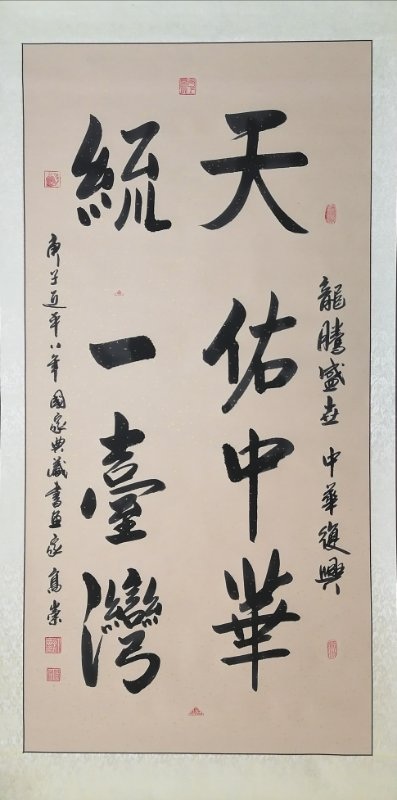 龍騰盛世 中華復興
天佑中華
統一臺灣
庚子近平八年 國家典藏書画家 高崇